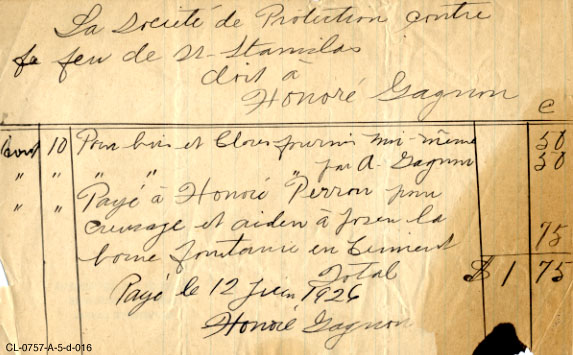 La Société de Protection contre
le feu de St-Stanislas
doit à
Honoré Gagnon
c
Aout 10 Pour bois et Clous fourni moi-même 50
" " " " par A. Gagnon 50
" " Payé à Honoré Perron pour
creusage et aider à poser la
borne fontaine en Ciment 75
Total $ 1 75
Payé le 12 Juin 1926
Honoré Gagnon
CL-0757-A-5-d-016